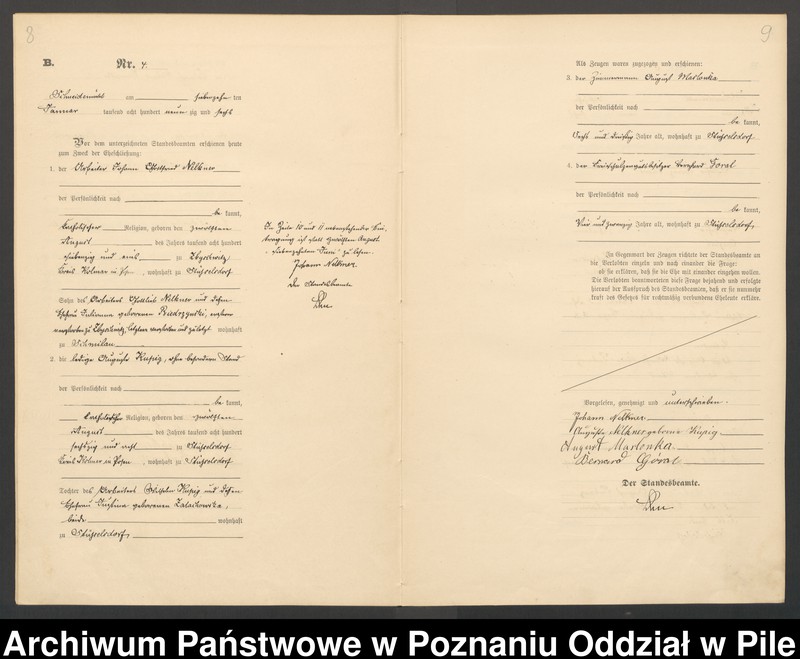 8
B. Nr. 4
Schneidemühl am siebenzehn ten
Januar tausend acht hundert neun zig und sechs
Vor dem unterzeichneten Standesbeamten erschienen heute
zum Zweck der Eheschließung:
1. der Arbeiter Johann Nelkner
der Persönlichkeit nach
be kannt,
katholischer Religion, geboren den zwölften
August des Jahres tausend acht hundert
siebenzig und eins zu
Kreis Kolmar in Posen, wohnhaft zu Stüsselsdorf
Sohn des Arbeiters Nelkner und dessen
Ehefrau Julianna geborenen
wohnhaft
zu Schmilau
2. die ledige Auguste Kupig, ohne besonderen Stand
der Persönlichkeit nach
be kannt,
katholischer Religion, geboren den zwölften
August des Jahres tausend acht hundert
sechszig und acht zu Stüsselsdorf
Kreis Kolmar in Posen, wohnhaft zu Stüsselsdorf
Tochter des Arbeiters Wilhelm Kupig und dessen
Ehefrau Justina geborenen
beide wohnhaft
zu Stüsselsdorf
In Zeile 10 und 11 nebenstehender Ein-
tragung ist statt zwölften August
siebenzehnten Juni zu lesen.
Johann Nelkner.
Der Standesbeamte
9
Als Zeugen waren zugezogen und erschienen:
3. der Zimmermann August Marlonka
der Persönlichkeit nach
be kannt,
sechs und dreißig Jahre alt, wohnhaft zu Stüsselsdorf
4. der Bernhard Goral
der Persönlichkeit nach
be kannt,
vier und zwanzig Jahre alt, wohnhaft zu Stüsselsdorf
In Gegenwart der Zeugen richtete der Standesbeamte an
die Verlobten einzeln und nach einander die Frage:
ob sie erklären, daß sie die Ehe mit einander eingehen wollen.
Die Verlobten beantworteten diese Frage bejahend und erfolgte
hierauf der Ausspruch des Standesbeamten, daß er sie nunmehr
kraft des Gesetzes für rechtmäßig verbundene Eheleute erkläre.
Vorgelesen, genehmigt und unterschrieben.
Johann Nelkner
Auguste Nelkner geborne Kupig
August Marlonka
Bernard Góral
Der Standesbeamte.
Archiwum Państwowe w Poznaniu Oddział w Pile